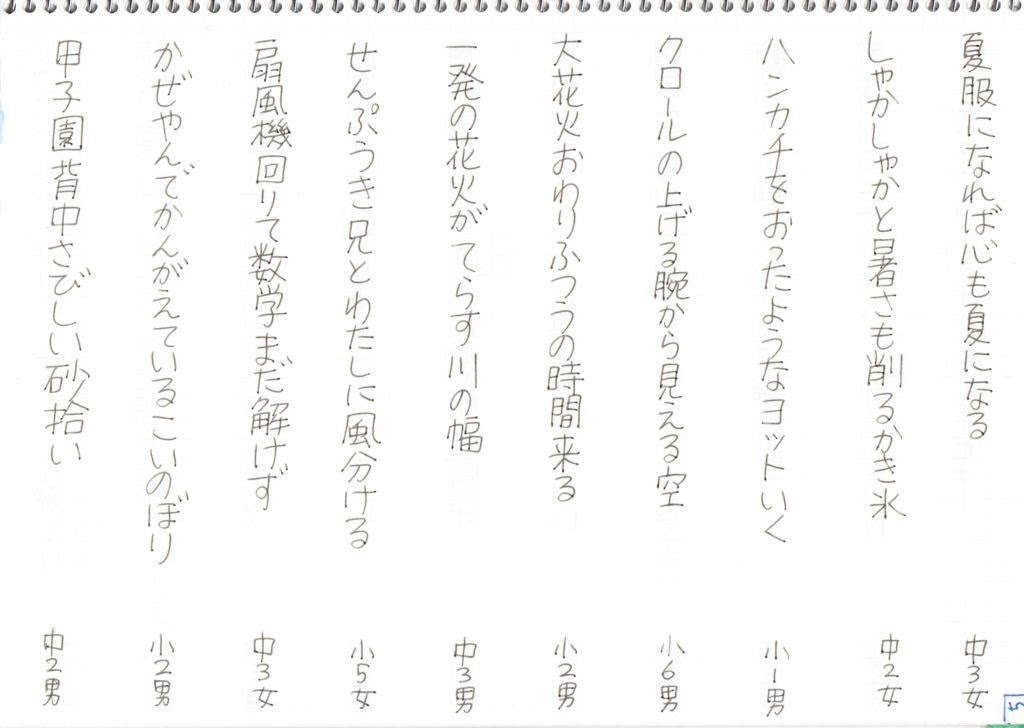 夏服になれば心も夏になる 中3女
しゃかしゃかと暑さも削るかき氷 中2女
ハンカチをおったようなヨットいく 小1男
クロールの上げる腕から見える空 小6男
大花火おわりふつうの時間来る 小2男
一発の花火がてらす川の幅 中3男
せんぷうき兄とわたしに風分ける 小5女
扇風機回りて数学まだ解けず 中3女
かぜやんでかんがえているこいのぼり 小2男
甲子園背中さびしい砂拾い 中2男
5